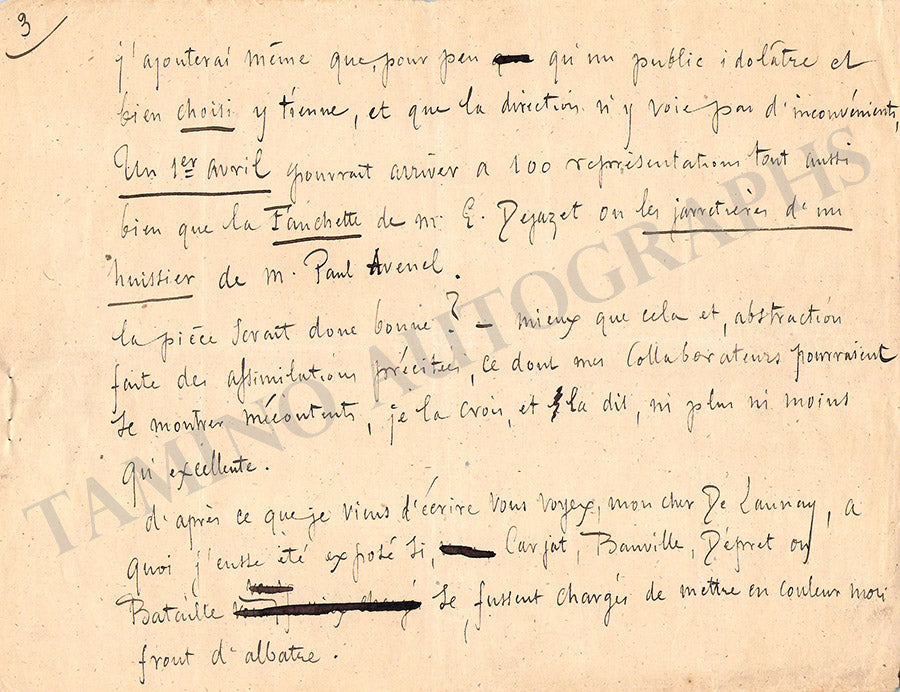 3
j'ajouterai même que, pour peu qu'un public idolâtre et
bien choisi y tienne, et que la direction n'y voie pas d'inconvénients,
Un 1er avril pourrait arriver a 100 représentations tout aussi
bien que la Fanchette de m. E. Dejazet ou les jarretières d'un
huissier de m. Paul Avenel.
la pièce serait donc bonne? – mieux que cela et, abstraction
faite des assimilations précitées, ce dont mes collaborateurs pourraient
se montrer mécontents, je la crois, et la dis, ni plus ni moins
qu'excellente.
d'après ce que je viens d'écrire vous voyez, mon cher De Launay, a
quoi j'eusse été exposé si, Carjat, Banville, Dépret ou
Bataille se fussent chargés de mettre en couleur mon
front d'albatre.
TAMINO AUTOGRAPHS